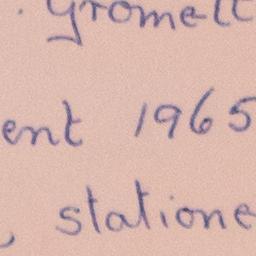 . Gromelt
ent 1965
, statione